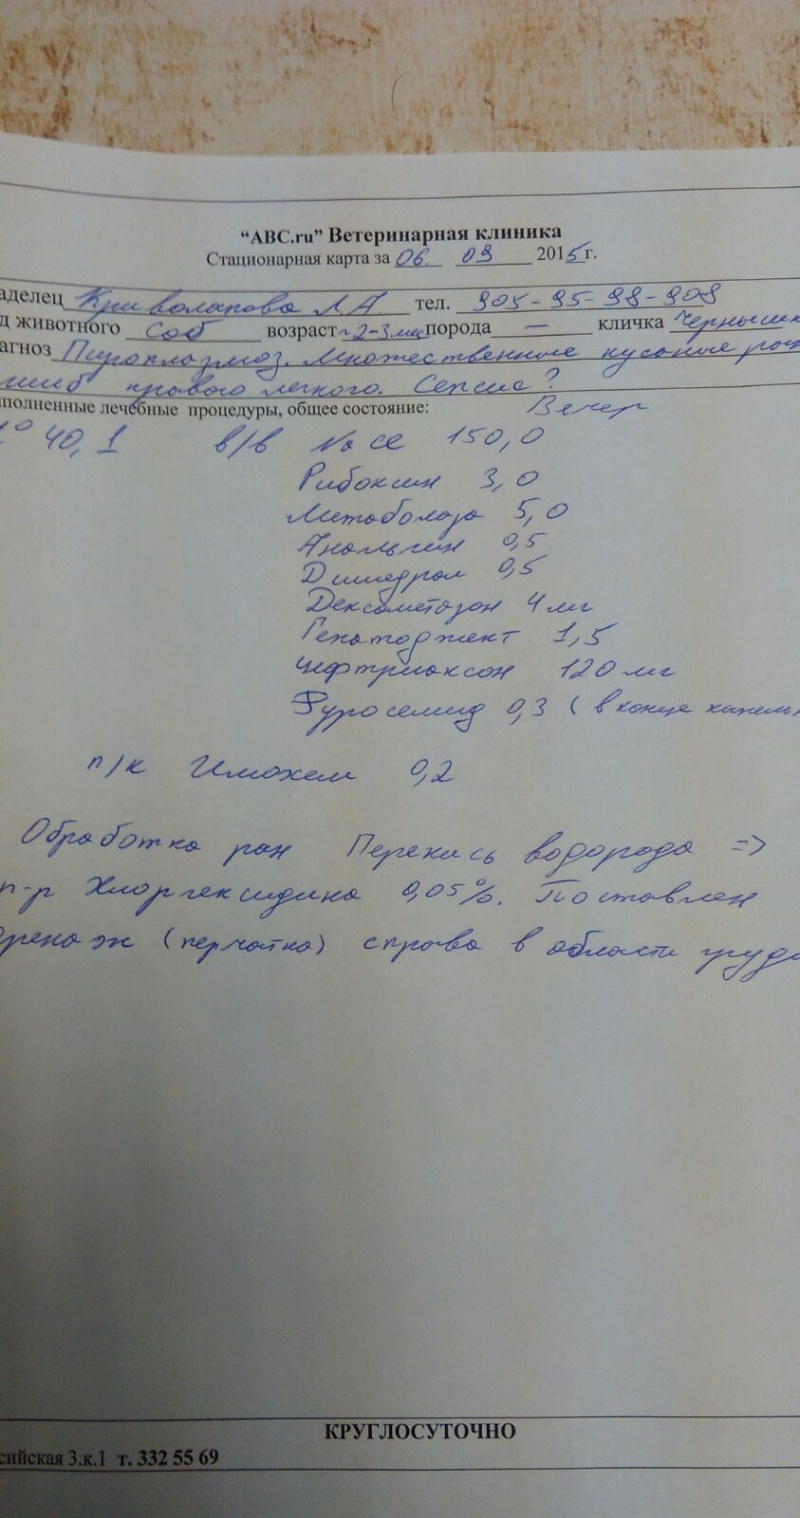 “АВС.ru” Ветеринарная клиника
Стационарная карта за 06. 09 2015 г.
аделец Л А тел. 905-95-98-908
д животного Соб возраст ~2-3 мес порода — кличка Черныш
агноз Пироплазмоз. Множественные кусаные
ушиб правого легкого. Сепсис?
полненные лечебные процедуры, общее состояние: Вечер
40,1 в/в Na Cе 150,0
Рибоксин 3,0
Метаболаза 5,0
Анальгин 0,5
Димедрол 0,5
Дексаметазон 4 мг
Гепатоджект 1,5
Цефтриаксон 120 мг
Фуросемид 0,3 (в конце
п/к Имохелм 0,2
Обработка ран Перекись водорода =>
р-р Хлоргексидина 0,05%. Поставлен
дренаж (перчатка) справа в области
КРУГЛОСУТОЧНО
сийская 3.к.1 т. 332 55 69